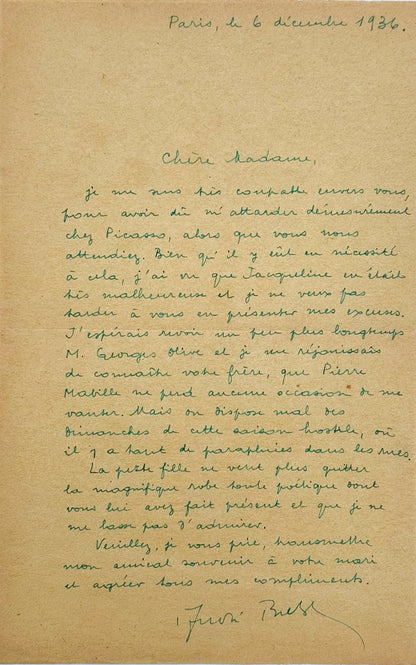 Paris, le 6 décembre 1936.
Chère Madame,
je me sens très coupable envers vous,
pour avoir dû m'attarder démesurément
chez Picasso, alors que vous nous
attendiez. Bien qu'il y eût eu nécessité
à cela, j'ai vu que Jacqueline en était
très malheureuse et je ne veux pas
tarder à vous en présenter mes excuses.
J'espérais revoir un peu plus longtemps
M. Georges Olive et je me réjouissais
de connaître votre frère, que Pierre
Mabille ne perd aucune occasion de me
vanter. Mais on dispose mal des
Dimanches de cette saison hostile, où
il y a tant de parapluies dans les rues.
La petite fille ne veut plus quitter
la magnifique robe toute poétique dont
vous lui avez fait présent et que je ne
me lasse pas d'admirer.
Veuillez, je vous prie, transmettre
mon amical souvenir à votre mari
et agréer tous mes compliments.
André Breton